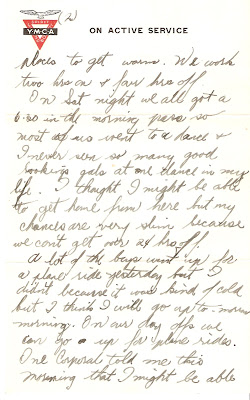 (2)
Y·M·C·A
ON ACTIVE SERVICE
places to get warm. We work
two hrs on & four hrs off.
On Sat night we all got a
6.30 in the morning pass so
most of us went to a dance &
I never seen so many good
looking gals at one dance in my
life. I thought I might be able
to get home from here but my
chances are very slim because
we can't get over 24 hrs off.
A lot of the boys went up for
a plane ride yesterday but I
didn't because it was kind of cold
but I think I will go up to-morrow
morning. On our day off we
can go up for plane rides.
One Corporal told me this
morning that I might be able